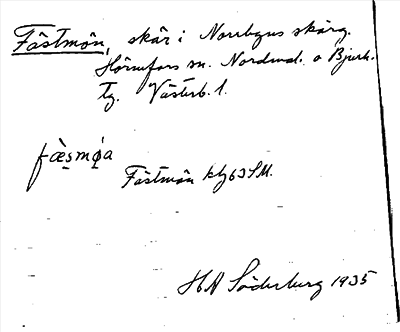 Fästmön, skär i Norrbyns skärg.
Hörnefors sn. Nordmal. o Bjurh.
tg. Västerb. l.
fæ̀smǿ̣a
Fästmön kbl 63 SM.
HA Söderberg 1935